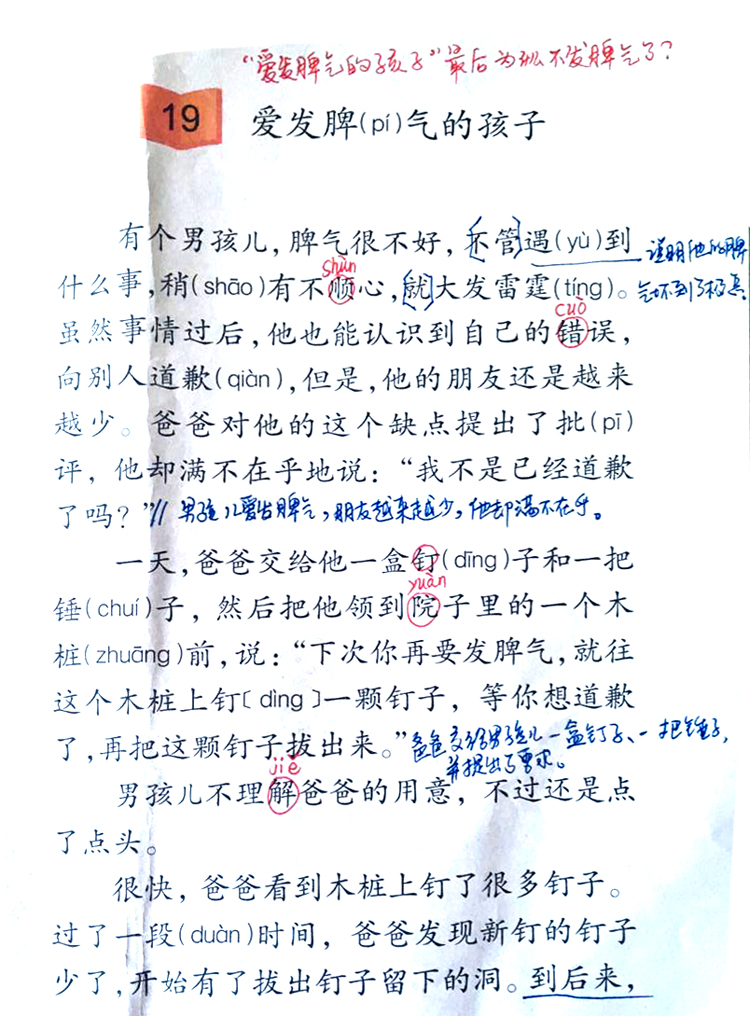 “爱发脾气的孩子”最后为什么不发脾气了?
19 爱发脾(pí)气的孩子
有个男孩儿,脾气很不好,不管遇(yù)到
说明他的脾
shùn
什么事,稍(shāo)有不顺心,就大发雷霆(tíng)。
气坏到了极点
cuò
虽然事情过后,他也能认识到自己的错误,
向别人道歉(qiàn),但是,他的朋友还是越来
越少。爸爸对他的这个缺点提出了批(pī)
评,他却满不在乎地说:“我不是已经道歉
了吗?”// 男孩儿爱发脾气,朋友越来越少,他却满不在乎。
一天,爸爸交给他一盒钉(dīng)子和一把
yuàn
锤(chuí)子,然后把他领到院子里的一个木
桩(zhuāng)前,说:“下次你再要发脾气,就往
这个木桩上钉〔dìng〕一颗钉子,等你想道歉
了,再把这颗钉子拔出来。”爸爸交给男孩儿一盒钉子、一把锤子,
并提出了要求。
jiě
男孩儿不理解爸爸的用意,不过还是点
了点头。
很快,爸爸看到木桩上钉了很多钉子。
过了一段(duàn)时间,爸爸发现新钉的钉子
少了,开始有了拔出钉子留下的洞。到后来,